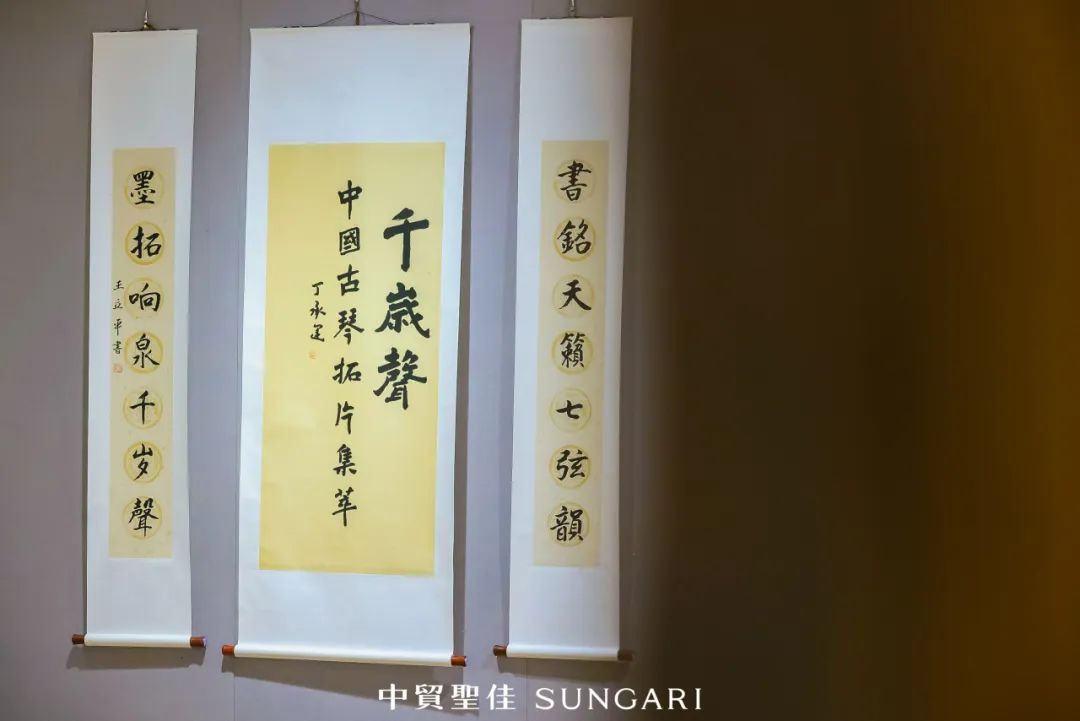 書銘天籟七弦韻
千歲聲
中國古琴拓片集萃
丁承運
墨拓响泉千岁聲
王立平書
中貿聖佳 SUNGARI